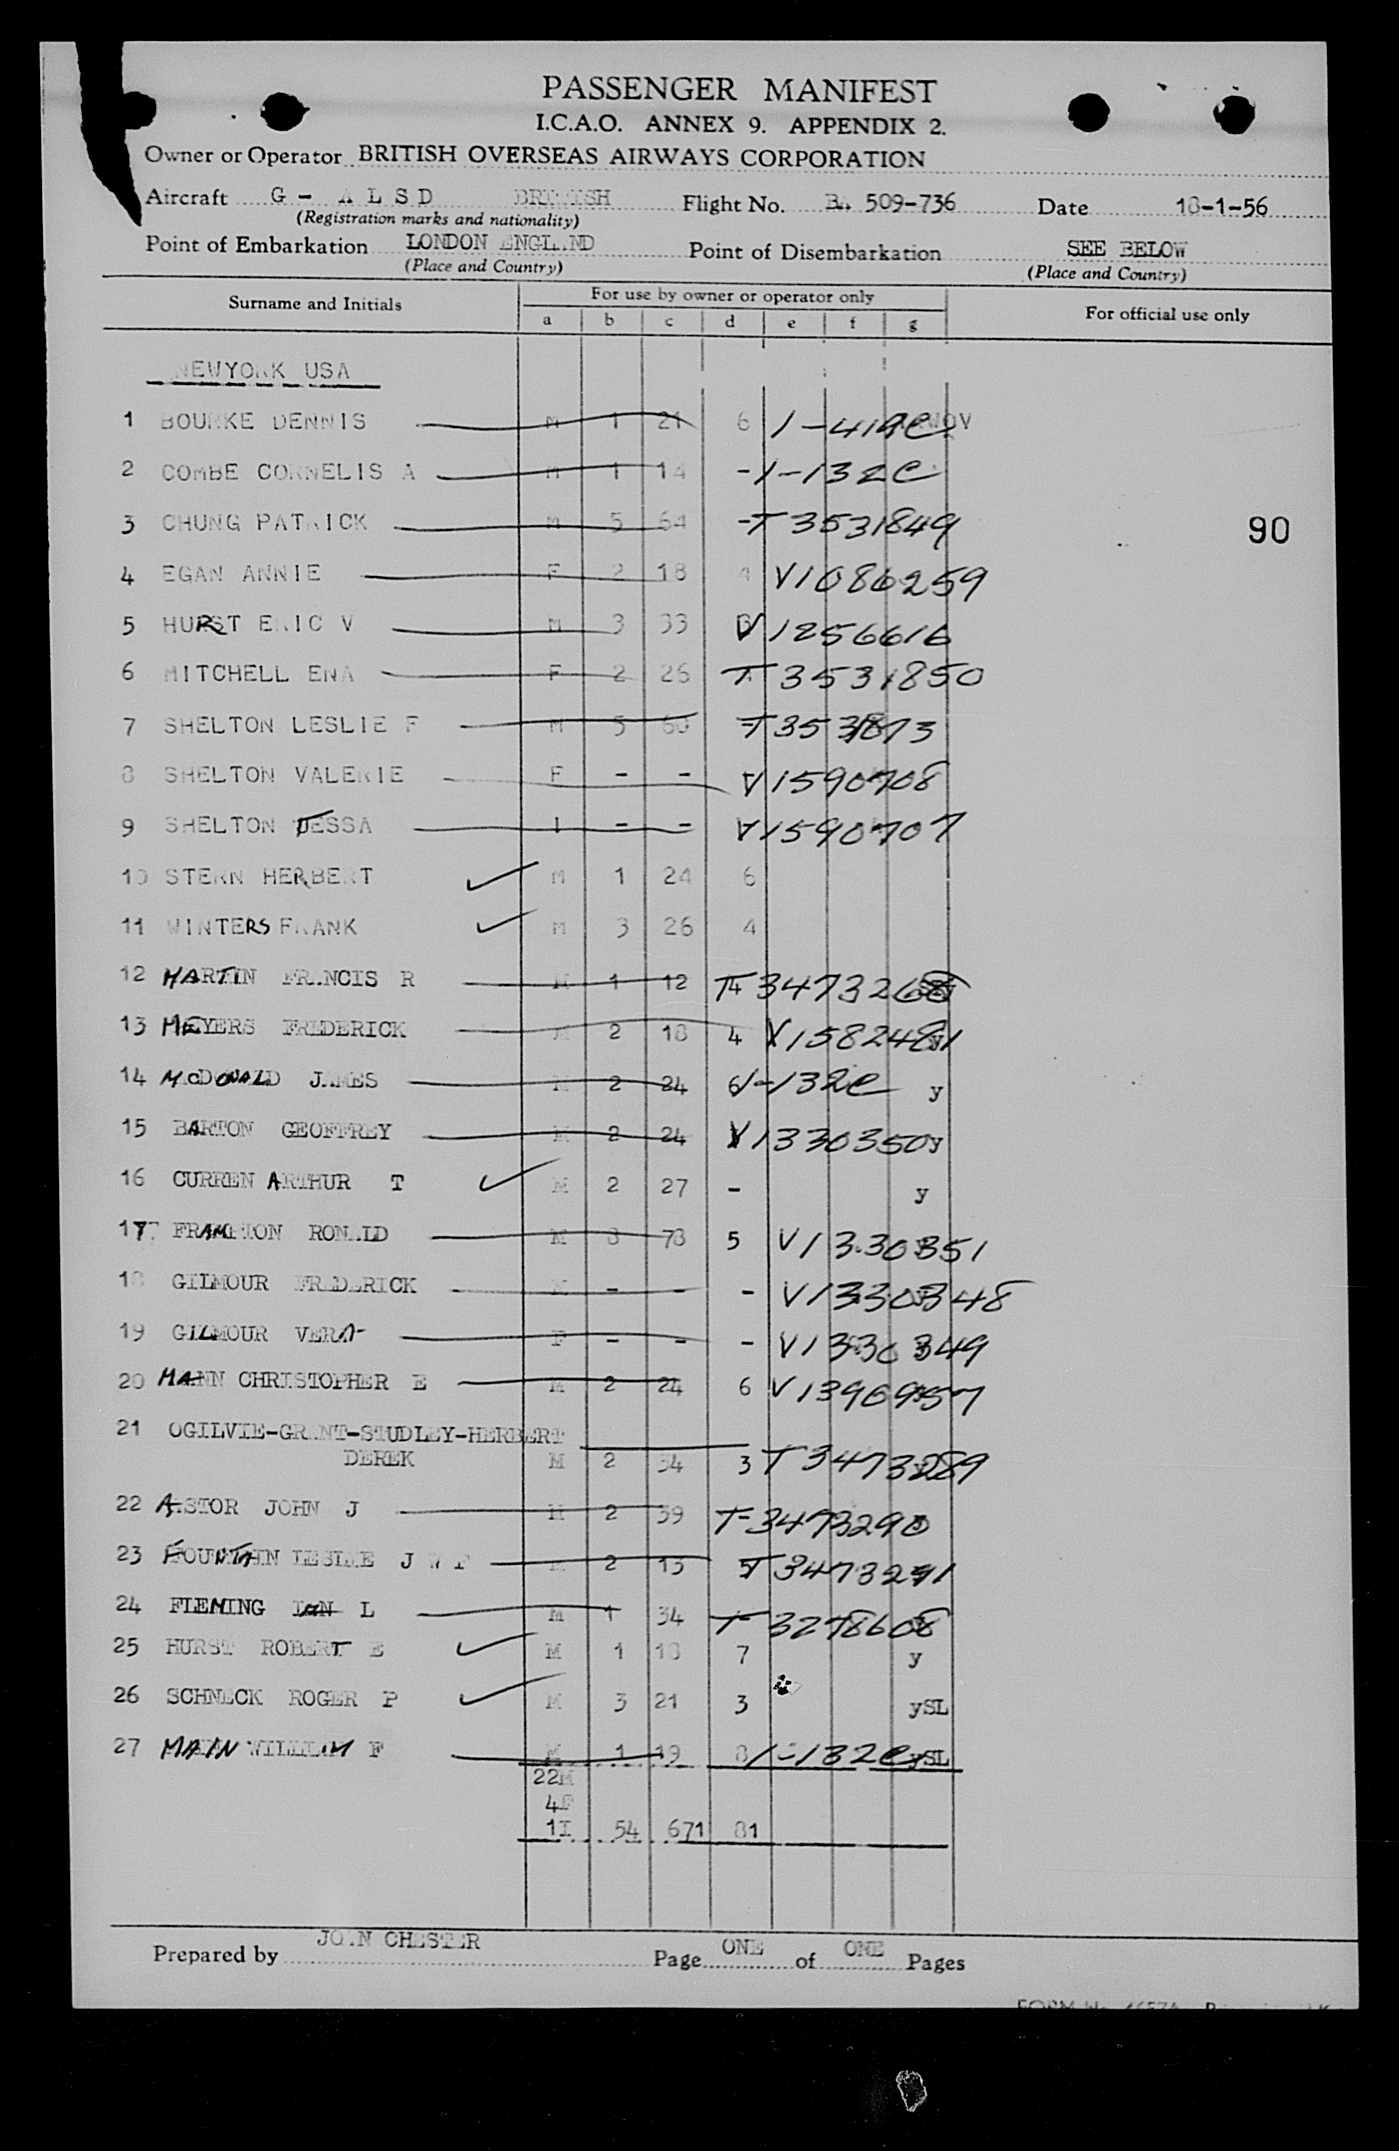 PASSENGER MANIFEST
I.C.A.O. ANNEX 9. APPENDIX 2.
Owner or Operator BRITISH OVERSEAS AIRWAYS CORPORATION
Aircraft G - A L S D BRITISH Flight No. BA 509-736 Date 18-1-56
(Registration marks and nationality)
Point of Embarkation LONDON ENGLAND Point of Disembarkation SEE BELOW
(Place and Country) (Place and Country)
Surname and Initials For use by owner or operator only For official use only
a b c d e f g
NEWYORK USA
1 BOURKE DENNIS M 1 21 6 1-419C
2 COMBE CORNELIS A M 1 14 - 1-132C
3 CHUNG PATRICK M 5 64 - T3531849
90
4 EGAN ANNIE F 2 18 4 V1086259
5 HURST ERIC V M 3 33 V1256616
6 MITCHELL ENA F 2 26 T3531850
7 SHELTON LESLIE F M 5 60 - T3531873
8 SHELTON VALERIE F - - V1590708
9 SHELTON TESSA I - - V1590707
10 STERN HERBERT M 1 24 6
11 WINTERS FRANK M 3 26 4
12 MARTIN FRANCIS R M 1 12 4 T3473268
13 MEYERS FREDERICK M 2 18 4 V1582481 y
14 McDONALD JAMES M 2 24 6 1-132C y
15 BARTON GEOFFREY M 2 24 V1330350 y
16 CURREN ARTHUR T M 2 27 - y
17 FRAMPTON RONALD M 8 78 5 V1330351
18 GILMOUR FREDERICK M - - - V1330348
19 GILMOUR VERA F - - - V1330349
20 MANN CHRISTOPHER E M 2 24 6 V1396957
21 OGILVIE-GRANT-STUDLEY-HERBERT
DEREK M 2 34 3 T3473289
22 ASTOR JOHN J M 2 39 - T3473290
23 FOUNTAIN LESLIE J W F M 2 13 5 T3473291
24 FLEMING IAN L M 1 34 - T3278608
25 HURST ROBERT E M 1 18 7 y
26 SCHNECK ROGER P M 3 21 3 ySL
27 MAIN WILLIAM F M 1 19 8 1-132C ySL
22M
4F
1I 54 671 81
Prepared by JOHN CHESTER Page ONE of ONE Pages